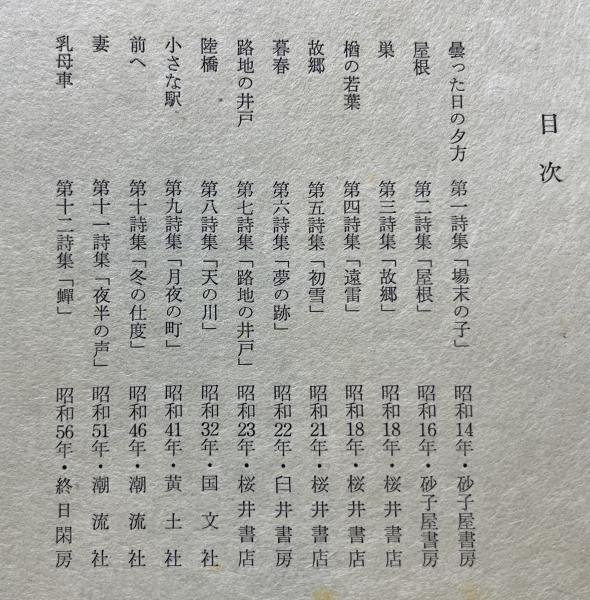 目次
曇った日の夕方 第一詩集「場末の子」 昭和14年・砂子屋書房
屋根 第二詩集「屋根」 昭和16年・砂子屋書房
巣 第三詩集「故郷」 昭和18年・桜井書店
楢の若葉 第四詩集「遠雷」 昭和18年・桜井書店
故郷 第五詩集「初雪」 昭和21年・桜井書店
暮春 第六詩集「夢の跡」 昭和22年・臼井書房
路地の井戸 第七詩集「路地の井戸」 昭和23年・桜井書店
陸橋 第八詩集「天の川」 昭和32年・国文社
小さな駅 第九詩集「月夜の町」 昭和41年・黄土社
前へ 第十詩集「冬の仕度」 昭和46年・潮流社
妻 第十一詩集「夜半の声」 昭和51年・潮流社
乳母車 第十二詩集「蟬」 昭和56年・終日閑房